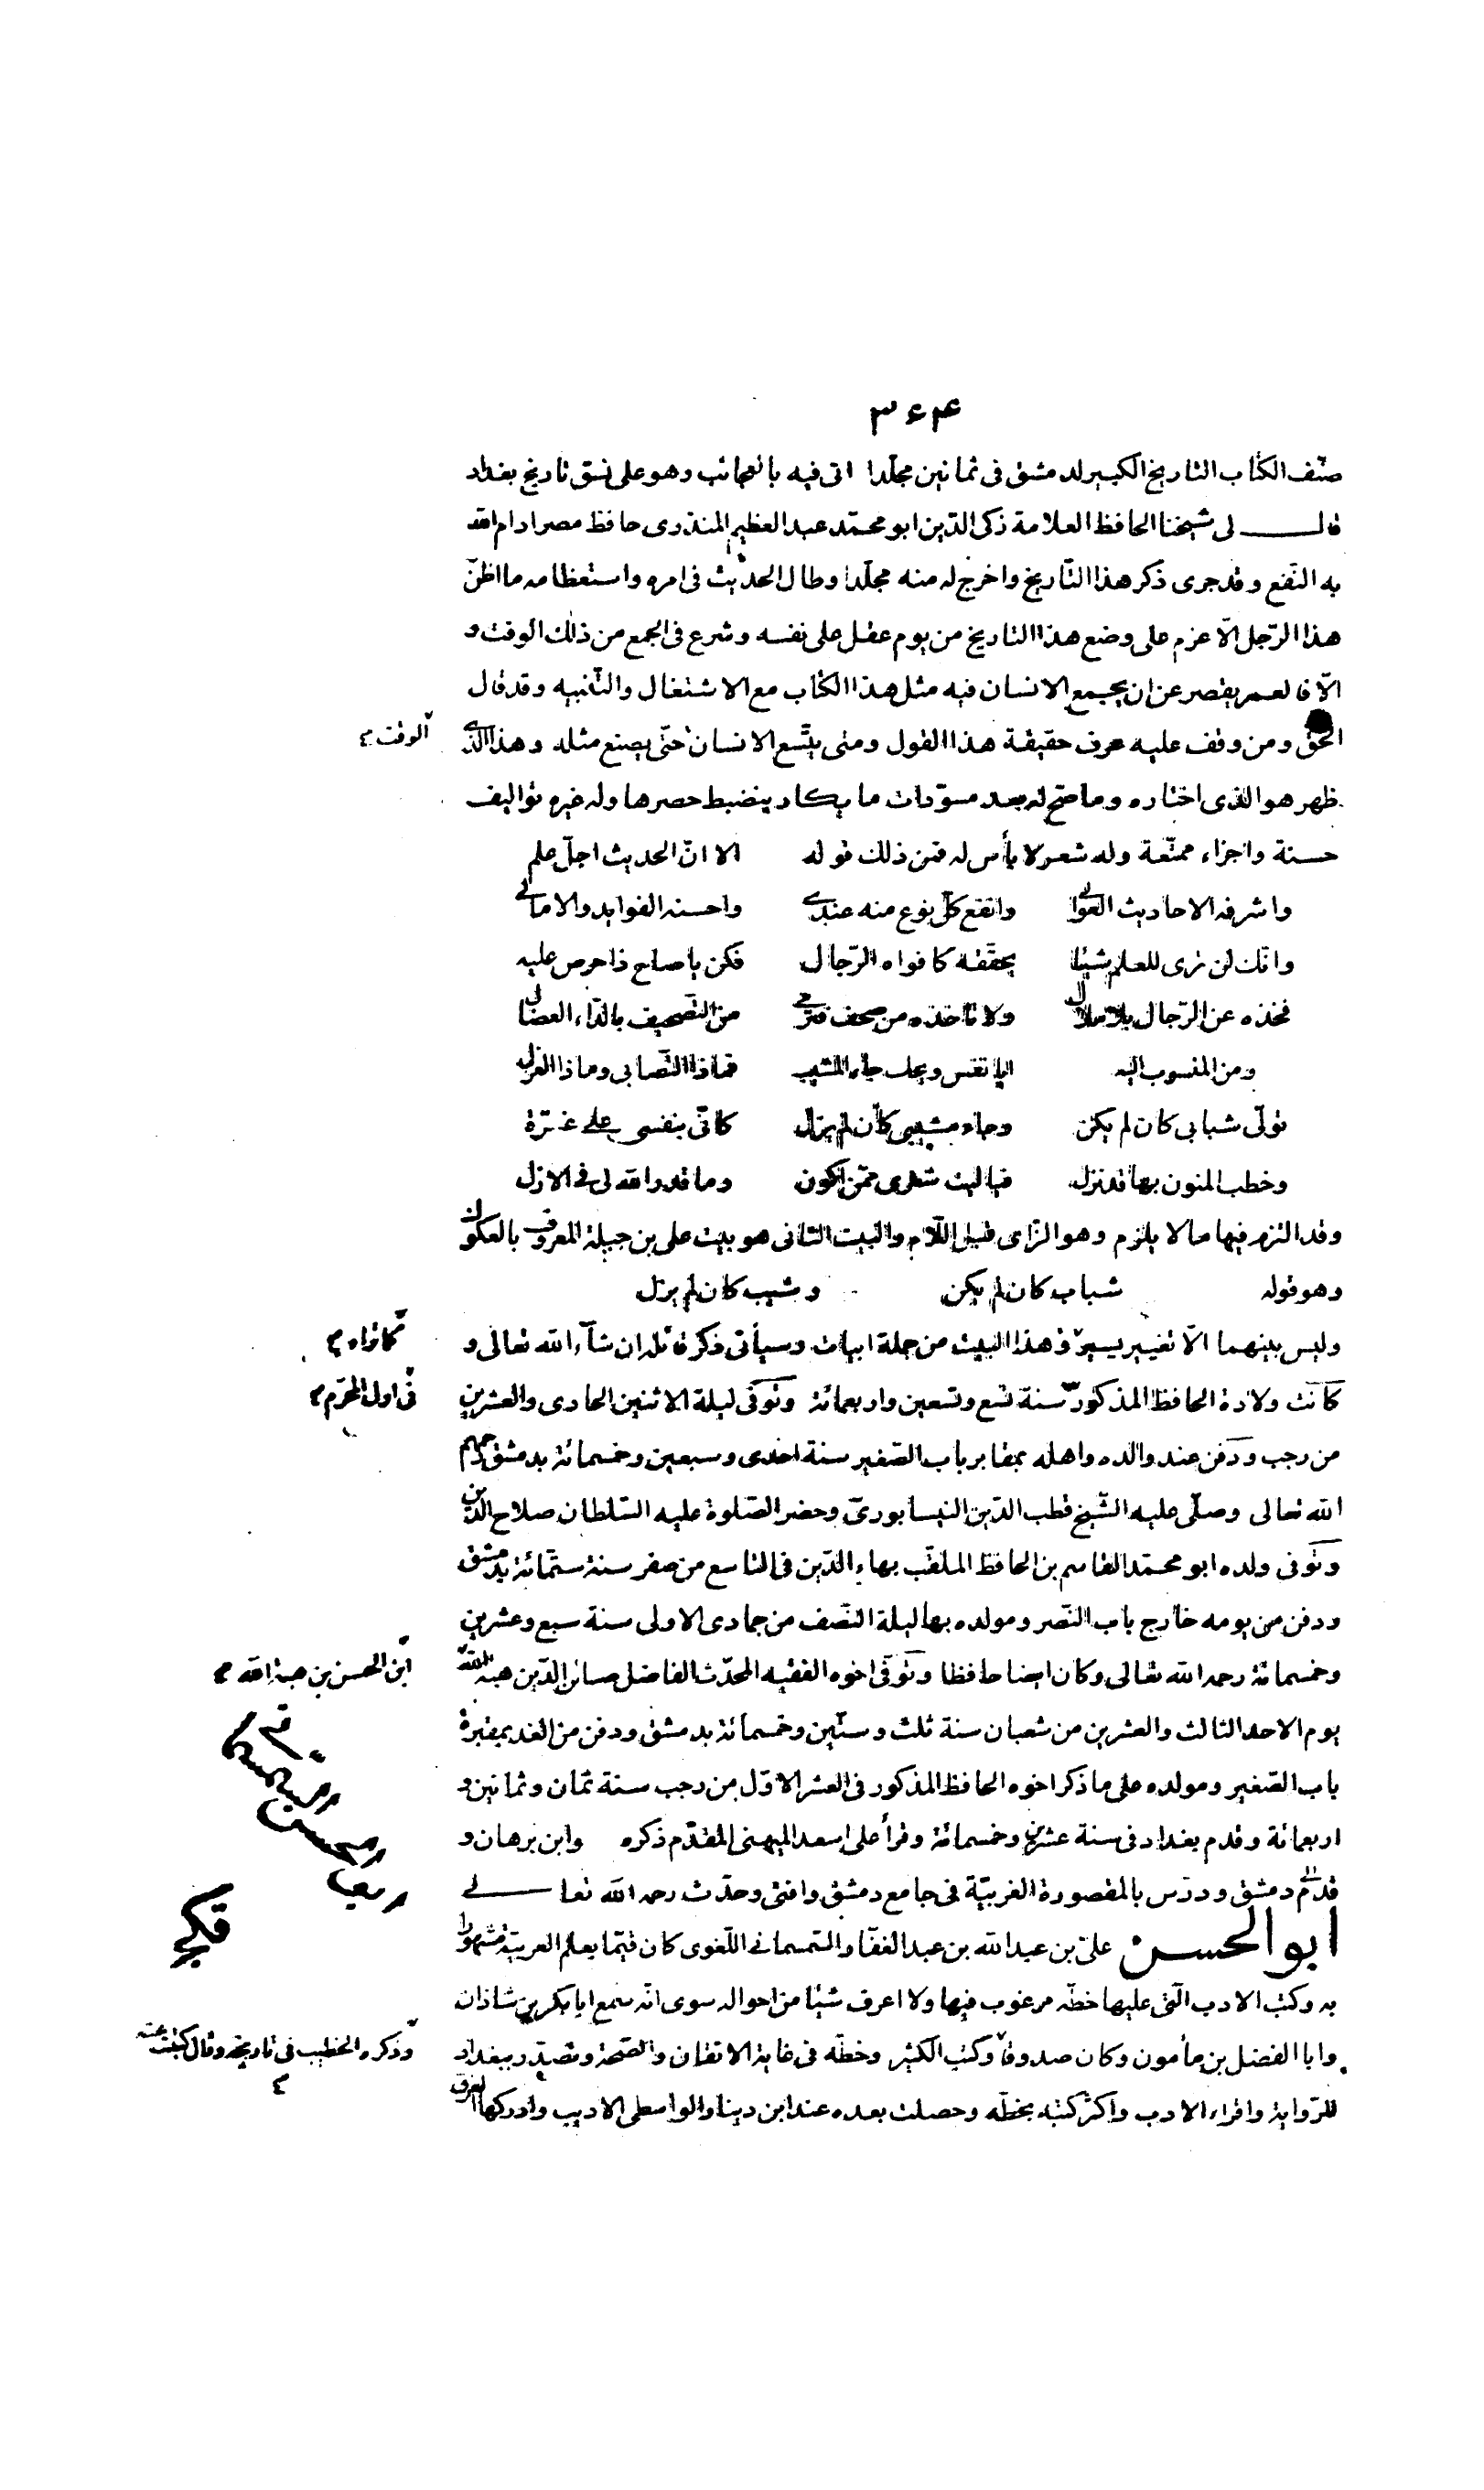 ۳۶۴
صنّف الكتاب التاريخ الكبير لدمشق فى ثمانين مجلّدا اتى فيه بالعجائب وهو على نسق تاريخ بغداد
قال لى شيخنا الحافظ العلامة زكى الدّين ابو محمّد عبد العظيم المنذرى حافظ مصر ادام الله
به النّفع وقد جرى ذكر هذا التّاريخ واخرج لى منه مجلّدا وطال الحديث فى امره واستعظامه ما اظنّ
هذا الرّجل الّا عزم على وضع هذا التاريخ من يوم عقل على نفسه وشرع فى الجمع من ذلك الوقت و
الّا فالعمر يقصر عن ان يجمع الانسان فيه مثل هذا الكتاب مع الاشتغال والتّنبيه وقد قال
الحقّ ومن وقف عليه عرف حقيقة هذا القول ومتى يتّسع الانسان حتّى يصنع مثله وهذا الّذى
الوقت
ظهر هو الذى اختاره وما صحّ له بعد مسوّدات ما يكاد ينضبط حصرها وله غيره تواليف
حسنة واجزاء ممتّعة وله شعر لا بأس له فمن ذلك قوله الا انّ الحديث اجلّ علم
واشرفه الاحاديث العوالى وانفع كلّ نوع منه عندى واحسنه الفوايد والامالى
وانّك لن ترى للعلم شيئا يحقّقه كافواه الرّجال فكن ياصاح ذا حرص عليه
فخذه عن الرّجال بلا ملال ولا تأخذه من صحف فترمى من التّصحيف بالدّاء العضال
ومن المنسوب اليه ايا نفس ويحك جاء المشيب فماذا التّصابى وماذا الغزل
تولّى شبابى كان لم يكن وجاء مشيبى كأن لم يزل كانّى بنفسى على غرّة
وخطب المنون بها قد نزل فياليت شعرى ممّن اكون وما قدر الله لى فى الازل
وقد التزم فيها ما لا يلزم وهو الزاى قبل اللّام والبيت الثانى هو بيت على بن جبلة المعروف بالعكوك
وهو قوله شباب كان لم يكن وشيب كان لم يزل
وليس بينهما الّا تغيير يسير وهذا البيت من جملة ابيات وسيأتى ذكر قائله ان شآء الله تعالى و
كانت ولادة الحافظ المذكور سنة تسع وتسعين واربعمائة وتوفى ليلة الاثنين الحادى والعشرين
فى اول المحرّم
من رجب ودفن عند والده واهله بمقابر باب الصّغير سنة احدى وسبعين وخمسمائة بدمشق رحمهم
الله تعالى وصلّى عليه الشّيخ قطب الدّين النيسابورىّ وحضر الصّلوة عليه السّلطان صلاح الدّين
وتوفى ولده ابو محمّد القاسم بن الحافظ الملقّب بهاء الدّين فى التاسع من صفر سنة ستمّائة بدمشق
ودفن من يومه خارج باب النّصر ومولده بها ليلة النّصف من جمادى الاولى سنة سبع وعشرين
وخمسمائة رحمه الله تعالى وكان ايضا حافظا وتوفّى اخوه الفقيه المحدّث الفاضل صائن الدّين هبة الله
ابن الحسن بن هبة الله
يوم الاحد الثالث والعشرين من شعبان سنة ثلث وستّين وخمسمائة بدمشق ودفن من الغد بمقبرة
باب الصّغير ومولده على ما ذكر اخوه الحافظ المذكور فى العشر الاوّل من رجب سنة ثمان وثمانين و
اربعمائة وقدم بغداد فى سنة عشرين وخمسمائة وقرأ على اسعد الميهنى المقدّم ذكره وابن برهان و
قدم الى دمشق ودرّس بالمقصورة الغربيّة فى جامع دمشق وافتى وحدّث رحمه الله تعالى
ابو الحسن علىّ بن عبد الله بن عبد الغفّار السّمسمانى اللّغوى كان قيّما بعلم العربيّة مشهورا
به وكتب الادب الّتى عليها خطّه مرغوب فيها ولا اعرف شيئا من احواله سوى انّه سمع ابا بكر بن شاذان
وابا الفضل بن مأمون وكان صدوقا وكتب الكثير وخطّه فى غاية الاتقان والصّحّة وتصدّر ببغداد
وذكره الخطيب فى تاريخه وقال كتبت عنه
للرّواية واقراء الادب واكثر كتبه بخطّه وحصلت بعده عند ابن دينار الواسطى الاديب وادركها الغرق